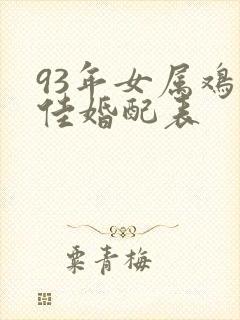 93年女属鸡
佳婚配表
粟青梅